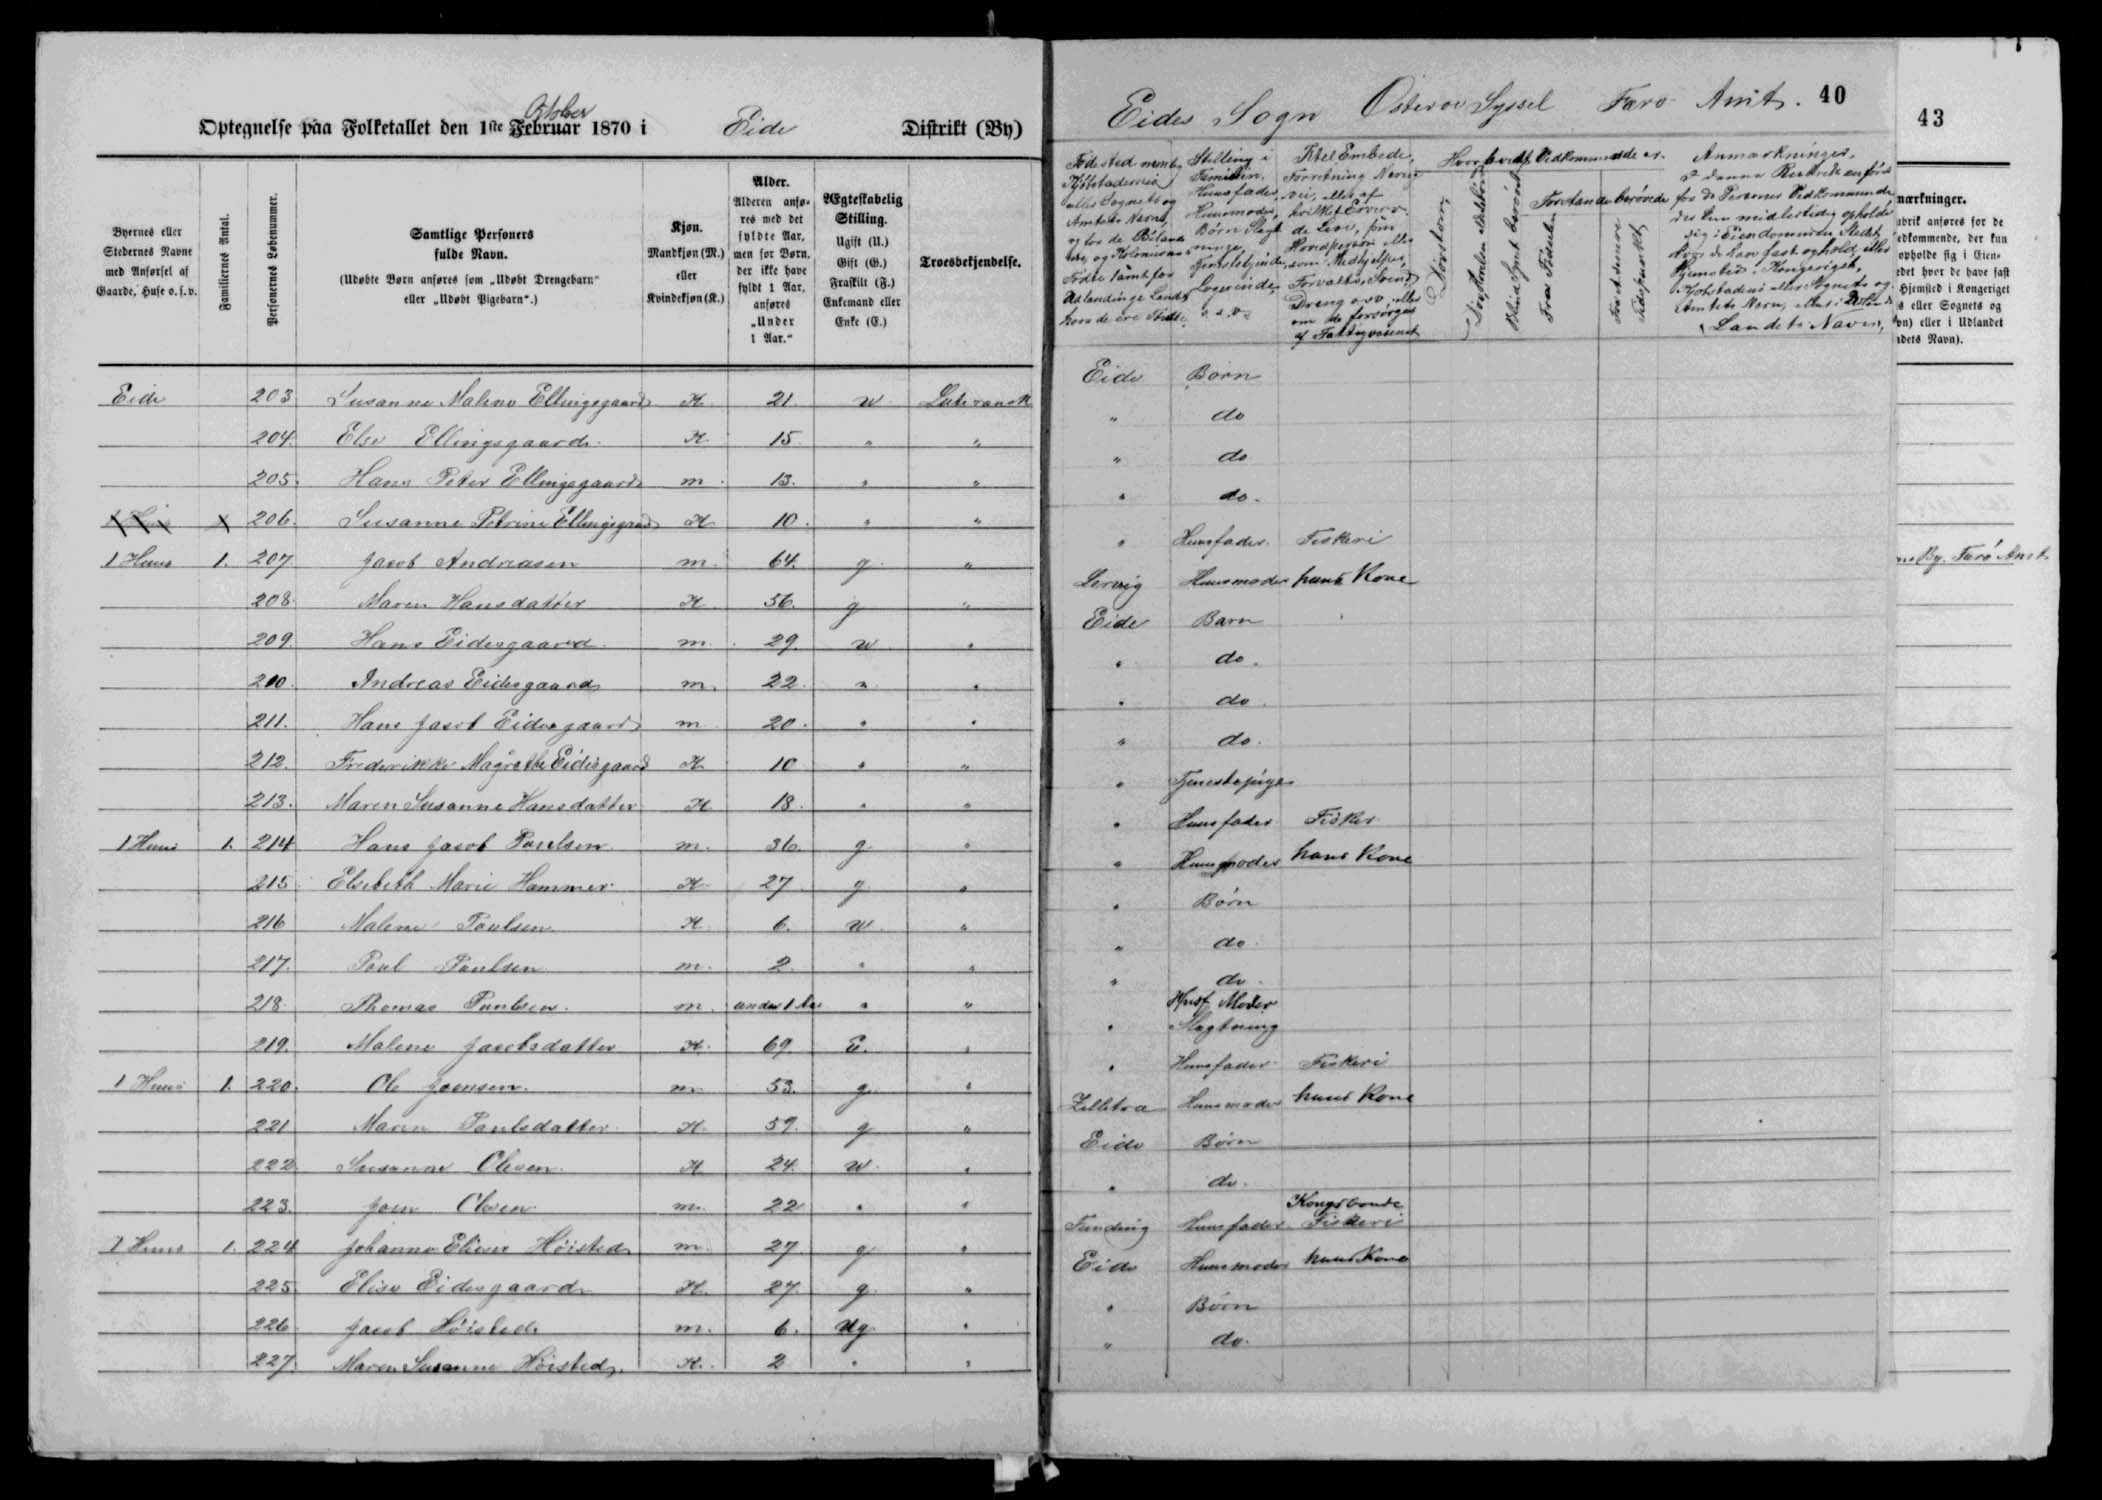 Optegnelse paa Folketallet den 1ste Februar 1870 i Eide Distrikt (By)
October
Byernes eller Stedernes Navne med Anførsel af Gaarde, Huse o. s. v.
Familiernes Antal.
Personernes Løbenummer.
Samtlige Personers fulde Navn.
(Udøbte Børn anføres som „Udøbt Drengebarn“ eller „Udøbt Pigebarn“.)
Kjøn. Mandkjøn (M.) eller Kvindekjøn (K.)
Alder. Alderen anføres med det fyldte Aar, men for Børn, der ikke have fyldt 1 Aar, anføres „Under 1 Aar.“
Ægteskabelig Stilling. Ugift (U.) Gift (G.) Fraskilt (F.) Enkemand eller Enke (E.)
Troesbekjendelse.
Eide 203 Susanne Malene Ellingsgaard K 21. u. Luteransk
204. Else Ellingsgaard K. 15. " "
205. Hans Peter Ellingsgaard m. 13. " "
206. Susanne Petrine Ellingsgaard K 10. " "
1 Huus 1. 207. Jacob Andreasen m. 64. g. "
208. Maren Hansdatter K 56. g "
209. Hans Eidesgaard m. 29. u "
210. Andreas Eidesgaard m. 22. " "
211. Hans Jacob Eidesgaard m. 20. " "
212. Frederikke Magrethe Eidesgaard K 10 " "
213. Maren Susanne Hansdatter K 18. " "
1 Huus 1. 214 Hans Jacob Poulsen m. 36. g. "
215 Elsebeth Marie Hammer K 27 g. "
216 Malene Poulsen K. 6. u. "
217. Poul Poulsen m. 2. " "
218. Thomas Poulsen. m. under 1 Aar " "
219. Malene Jacobsdatter K. 69. E. "
1 Huus 1. 220. Ole Joensen. m. 53. g. "
221 Maren Poulsdatter K. 59. g "
222. Susanne Olesen. K 24. u. "
223. Joen Olesen m. 22 " "
1 Huus 1. 224 Johannes Elieser Höisted m. 27 g. "
225. Elise Eidesgaard K. 27. g. "
226 Jacob Höisted m. 6. Ug. "
227. Maren Susanne Höisted. K. 2 " "
Eides Sogn Österoe Syssel Færø Amt. 40
Stilling i Familien. Huusfader, Huusmoder, Börn
Hvorvidt Vedkommende er.
Døvstom.
Forstandsberövede
Anmærkninger.
Eide Børn
" do
" do
" do.
" Huusfader. Fiskeri
Lervig Huusmoder hans Kone
Eide Barn
" do.
" do.
" do.
" Tjenestepige
" Huusfader Fisker
" Huusmoder hans Kone
" Børn
" do
" do.
" Husf. Moder Slægtning
" Huusfader Fiskeri
Zelletræ Huusmoder hans Kone
Eide Børn
" do.
Kongsbonde
Funding Huusfader Fiskeri
Eide Huusmoder hans Kone
" Børn
" do.
43
mærkninger.
brik anføres for de
edkommende, der kun
opholde sig i Eien-
edet hvor de have fast
Hjemsted i Kongeriget
s eller Sognets og
vn) eller i Udlandet
ndets Navn).
By. Færö Amt.